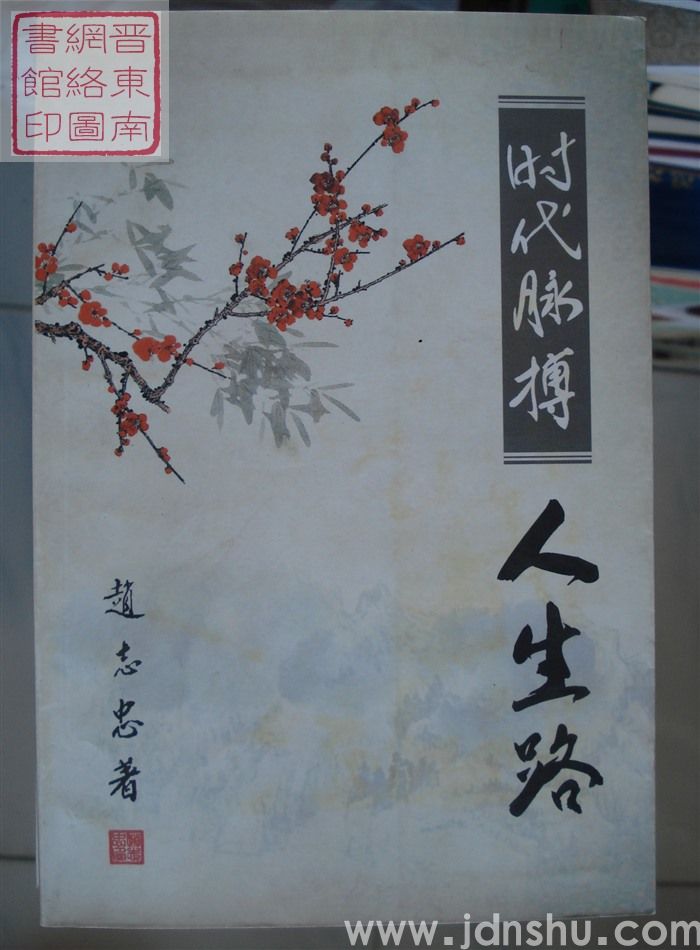 晋東南
網絡圖
書館印
时代脉搏
人生路
趙志忠著
www.jdnshu.com